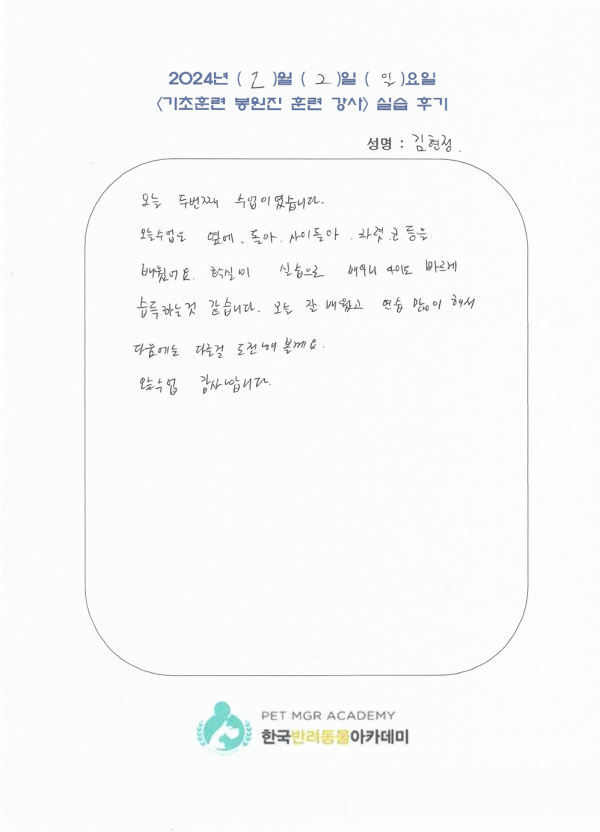 2024년 ( )월 ( 2 )일 ( 일 )요일
<기초훈련 봉원진 훈련 강사> 실습 후기
성명 : 김현정.
오늘 두번째 수업이였습니다.
오늘수업은 옆에, 돌아, 사이돌아, 차렷, 코 등을
배웠어요. 확실히 실습으로 배우니 아이도 빠르게
습득하는것 같습니다. 오늘 잘 배웠고 연습 많이 해서
다음에는 다른걸 도전해 볼께요.
오늘수업 감사합니다.
PET MGR ACADEMY
한국반려동물아카데미